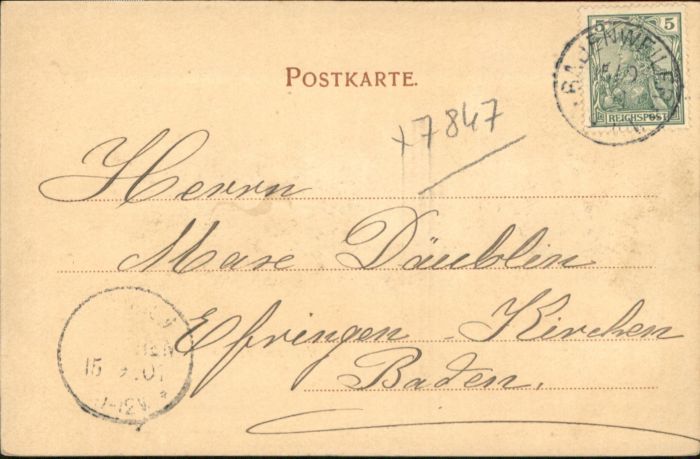 POSTKARTE.
5 5
REICHSPOST
BADENWEILER
+7847
Herrn
Max Däublin
Efringen-Kirchen
Baden.
15 9 01
-12V.